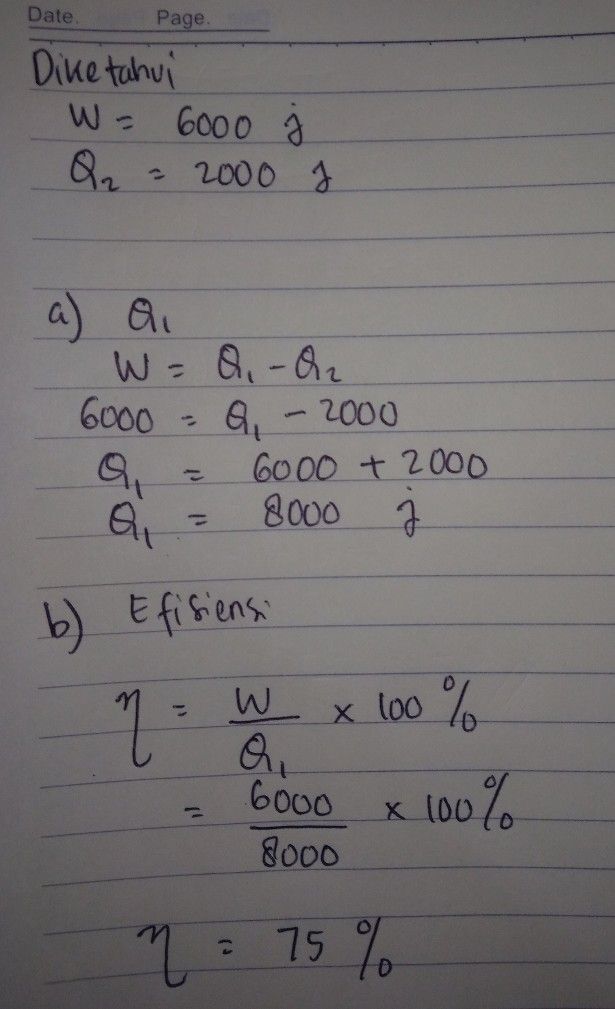 Date. Page.
Diketahui
W = 6000 j
Q₂ = 2000 j
a) Q₁
W = Q₁ - Q₂
6000 = Q₁ - 2000
Q₁ = 6000 + 2000
Q₁ = 8000 j
b) Efisiensi
η = W/Q₁ × 100 %
= 6000/8000 × 100 %
η = 75 %